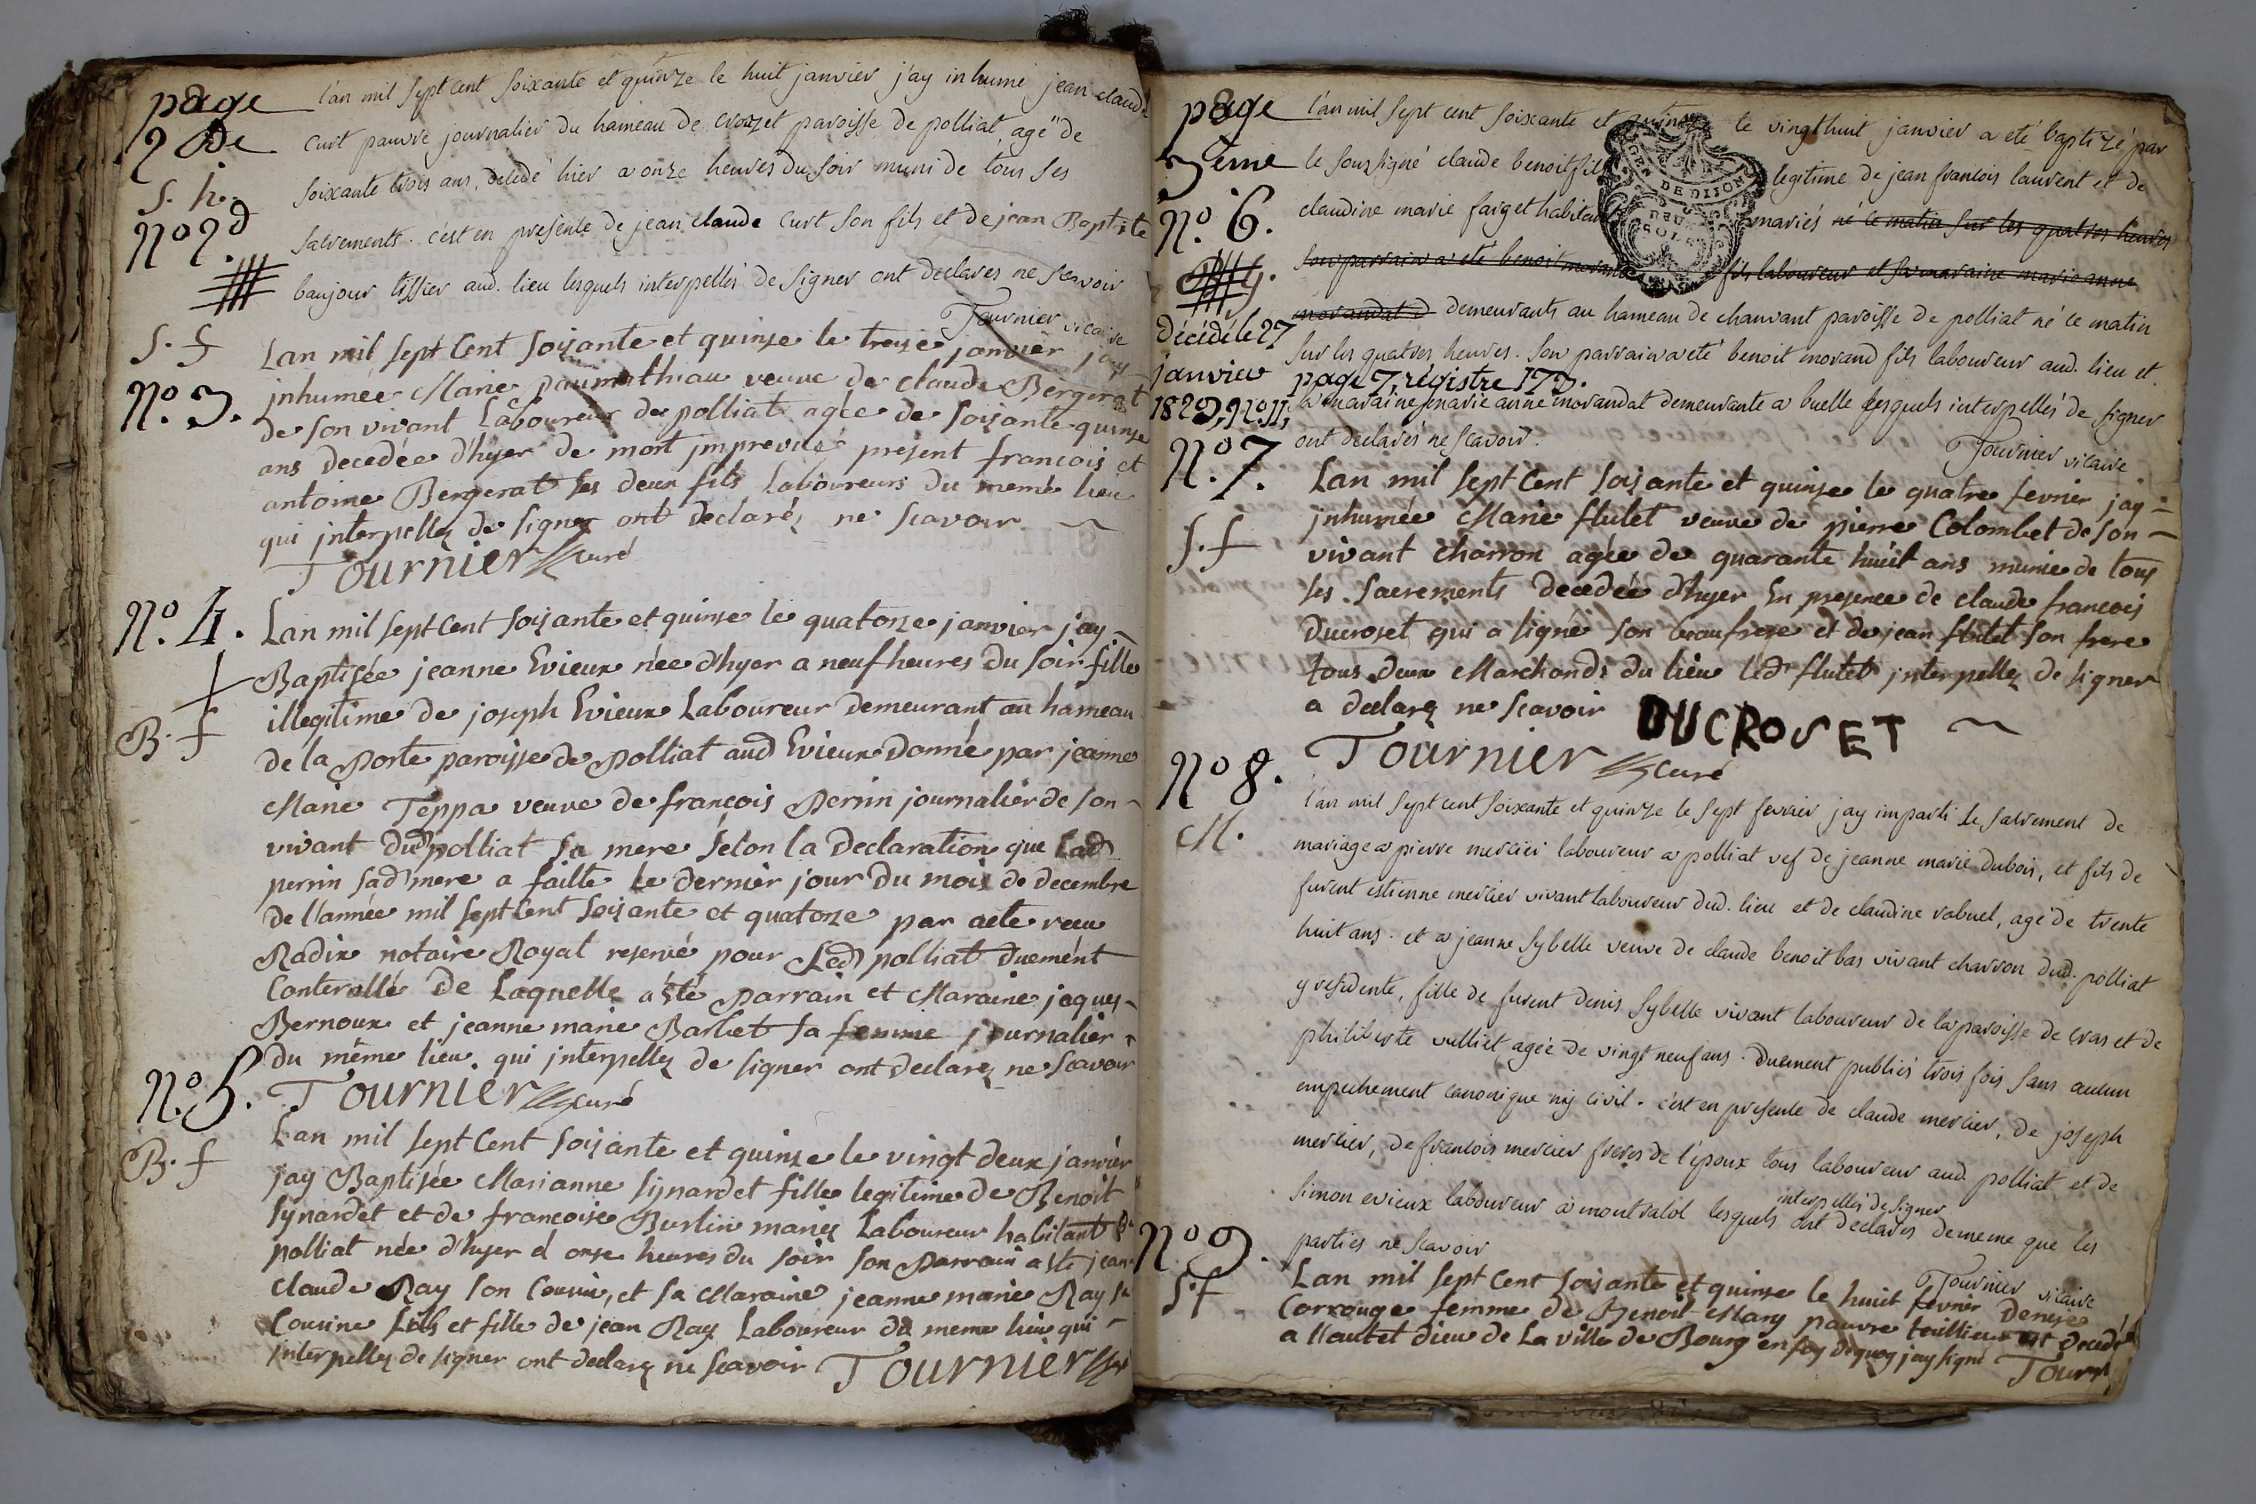 page
2de
S. h.
N° 2d
l'an mil sept cent soixante et quinze le huit janvier j'ay inhumé jean claude
curt pauvre journalier du hameau de crozet paroisse de polliat agé de
soixante trois ans, décédé hier a onze heures du soir muni de tous ses
sacrements. c'est en présence de jean claude curt son fils et de jean Baptiste
baujour tissier aud. lieu lesquels interpellés de signer ont declarés ne scavoir
Tournier vicaire
S. f
N° 3.
Lan mil sept Cent soixante et quinse le treise janvier jay
inhumée Marie paumathiau veuve de claude Bergerat
de son vivant Laboureur de polliat agée de soixante quinse
ans decedée d'hyer de mort imprevue présent francois et
antoine Bergerat ses deux fils Laboureurs du meme lieu
qui interpellez de signer ont declaréz ne scavoir
Tournier curé
N° 4.
B. f
Lan mil sept Cent soixante et quinse le quatorze janvier j'ay
Baptisée jeanne Evieux née d'hyer a neuf heures du soir fille
illegitime de joseph Evieux Laboureur demeurant au hameau
de la porte paroisse de polliat aud Evieux donné par jeanne
Marie Teppa veuve de francois perrin journalier de son
vivant dud polliat sa mere selon la declaration que Lad
perrin sad mere a faitte le dernier jour du mois de decembre
de l'année mil sept Cent soixante et quatorze par acte receu
Radix notaire Royal reservé pour Led polliat duement
Conterollé de Laquelle a été parrain et Maraine jaques
Bernoux et jeanne marie Barbet sa femme journalier
du même lieu qui interpellez de signer ont declarez ne scavoir
Tournier curé
N° 5.
B. f
Lan mil sept Cent soixante et quinse le vingt deux janvier
jay Baptisée Marianne synardet fille legitime de Benoit
synardet et de francoise Burlin mariez Laboureur habitant
polliat née d'hyer a onze heures du soir son parrain a été jean
claude Ray son Cousin, et sa Maraine jeanne marie Ray sa
Cousine fils et fille de jean Ray Laboureur du meme lieu qui
interpellez de signer ont declarez ne scavoir Tournier curé
page
3ème
N° 6.
décédé le 27
janvier
1820, N° 11,
page 7, régistre 173.
l'an mil sept cent soixante et quinze le vingt huit janvier a eté baptizé par
le soussigné claude benoit fils legitime de jean francois laurent et de
claudine marie farget habitants mariés né ce matin sur les quatres heures
son parrain a eté benoit morand fils laboureur et sa maraine marie anne
morandat d demeurants au hameau de chanvant paroisse de polliat né ce matin
sur les quatres heures. son parrain a eté benoit morand fils laboureur aud. lieu et
la maraine marie anne morandat demeurante a buelle lesquels interpellés de signer
ont declarés ne scavoir.
Tournier vicaire
GEN. DE DIJON
DEUX
SOLS
N° 7.
S. f
Lan mil sept Cent soixante et quinse le quatre fevrier jay
inhumée Marie flutet veuve de pierre Colombet de son
vivant charron agée de quarante huit ans munie de tous
ses sacrements decedée d'hyer En presence de claude francois
Ducroset qui a signé son beaufrere et de jean flutet son frere
tous deux Marchands du lieu led flutet interpellez de signer
a declarez ne scavoir DUCROSET
Tournier curé
N° 8.
M.
l'an mil sept cent soixante et quinze le sept fevrier jay imparti le sacrement de
mariage a pierre mercier laboureur a polliat vef de jeanne marie dubois, et fils de
furent estienne mercier vivant laboureur dud. lieu et de claudine rabuel, agé de trente
huit ans. et a jeanne sybelle veuve de claude benoit bas vivant charron dud. polliat
y residente, fille de furent denis sybelle vivant laboureur de la paroisse de cras et de
philiberte vulliet agée de vingt neuf ans. duement publiés trois fois sans aucun
empechement canonique ny civil. c'est en presence de claude mercier, de joseph
mercier, de francois mercier freres de l'epoux tous laboureur aud. polliat et de
simon evieux laboureur a montvalol lesquels interpellés de signer ont declarés de meme que les
parties ne scavoir
Tournier vicaire
N° 9.
S. f
Lan mil sept Cent soixante et quinse le huit fevrier Denise
Corrouge femme de Benoit Mary pauvre teillieur est decedé
a l'autet dieu de La ville de Bourg en foy de quoy jay signé Tourn